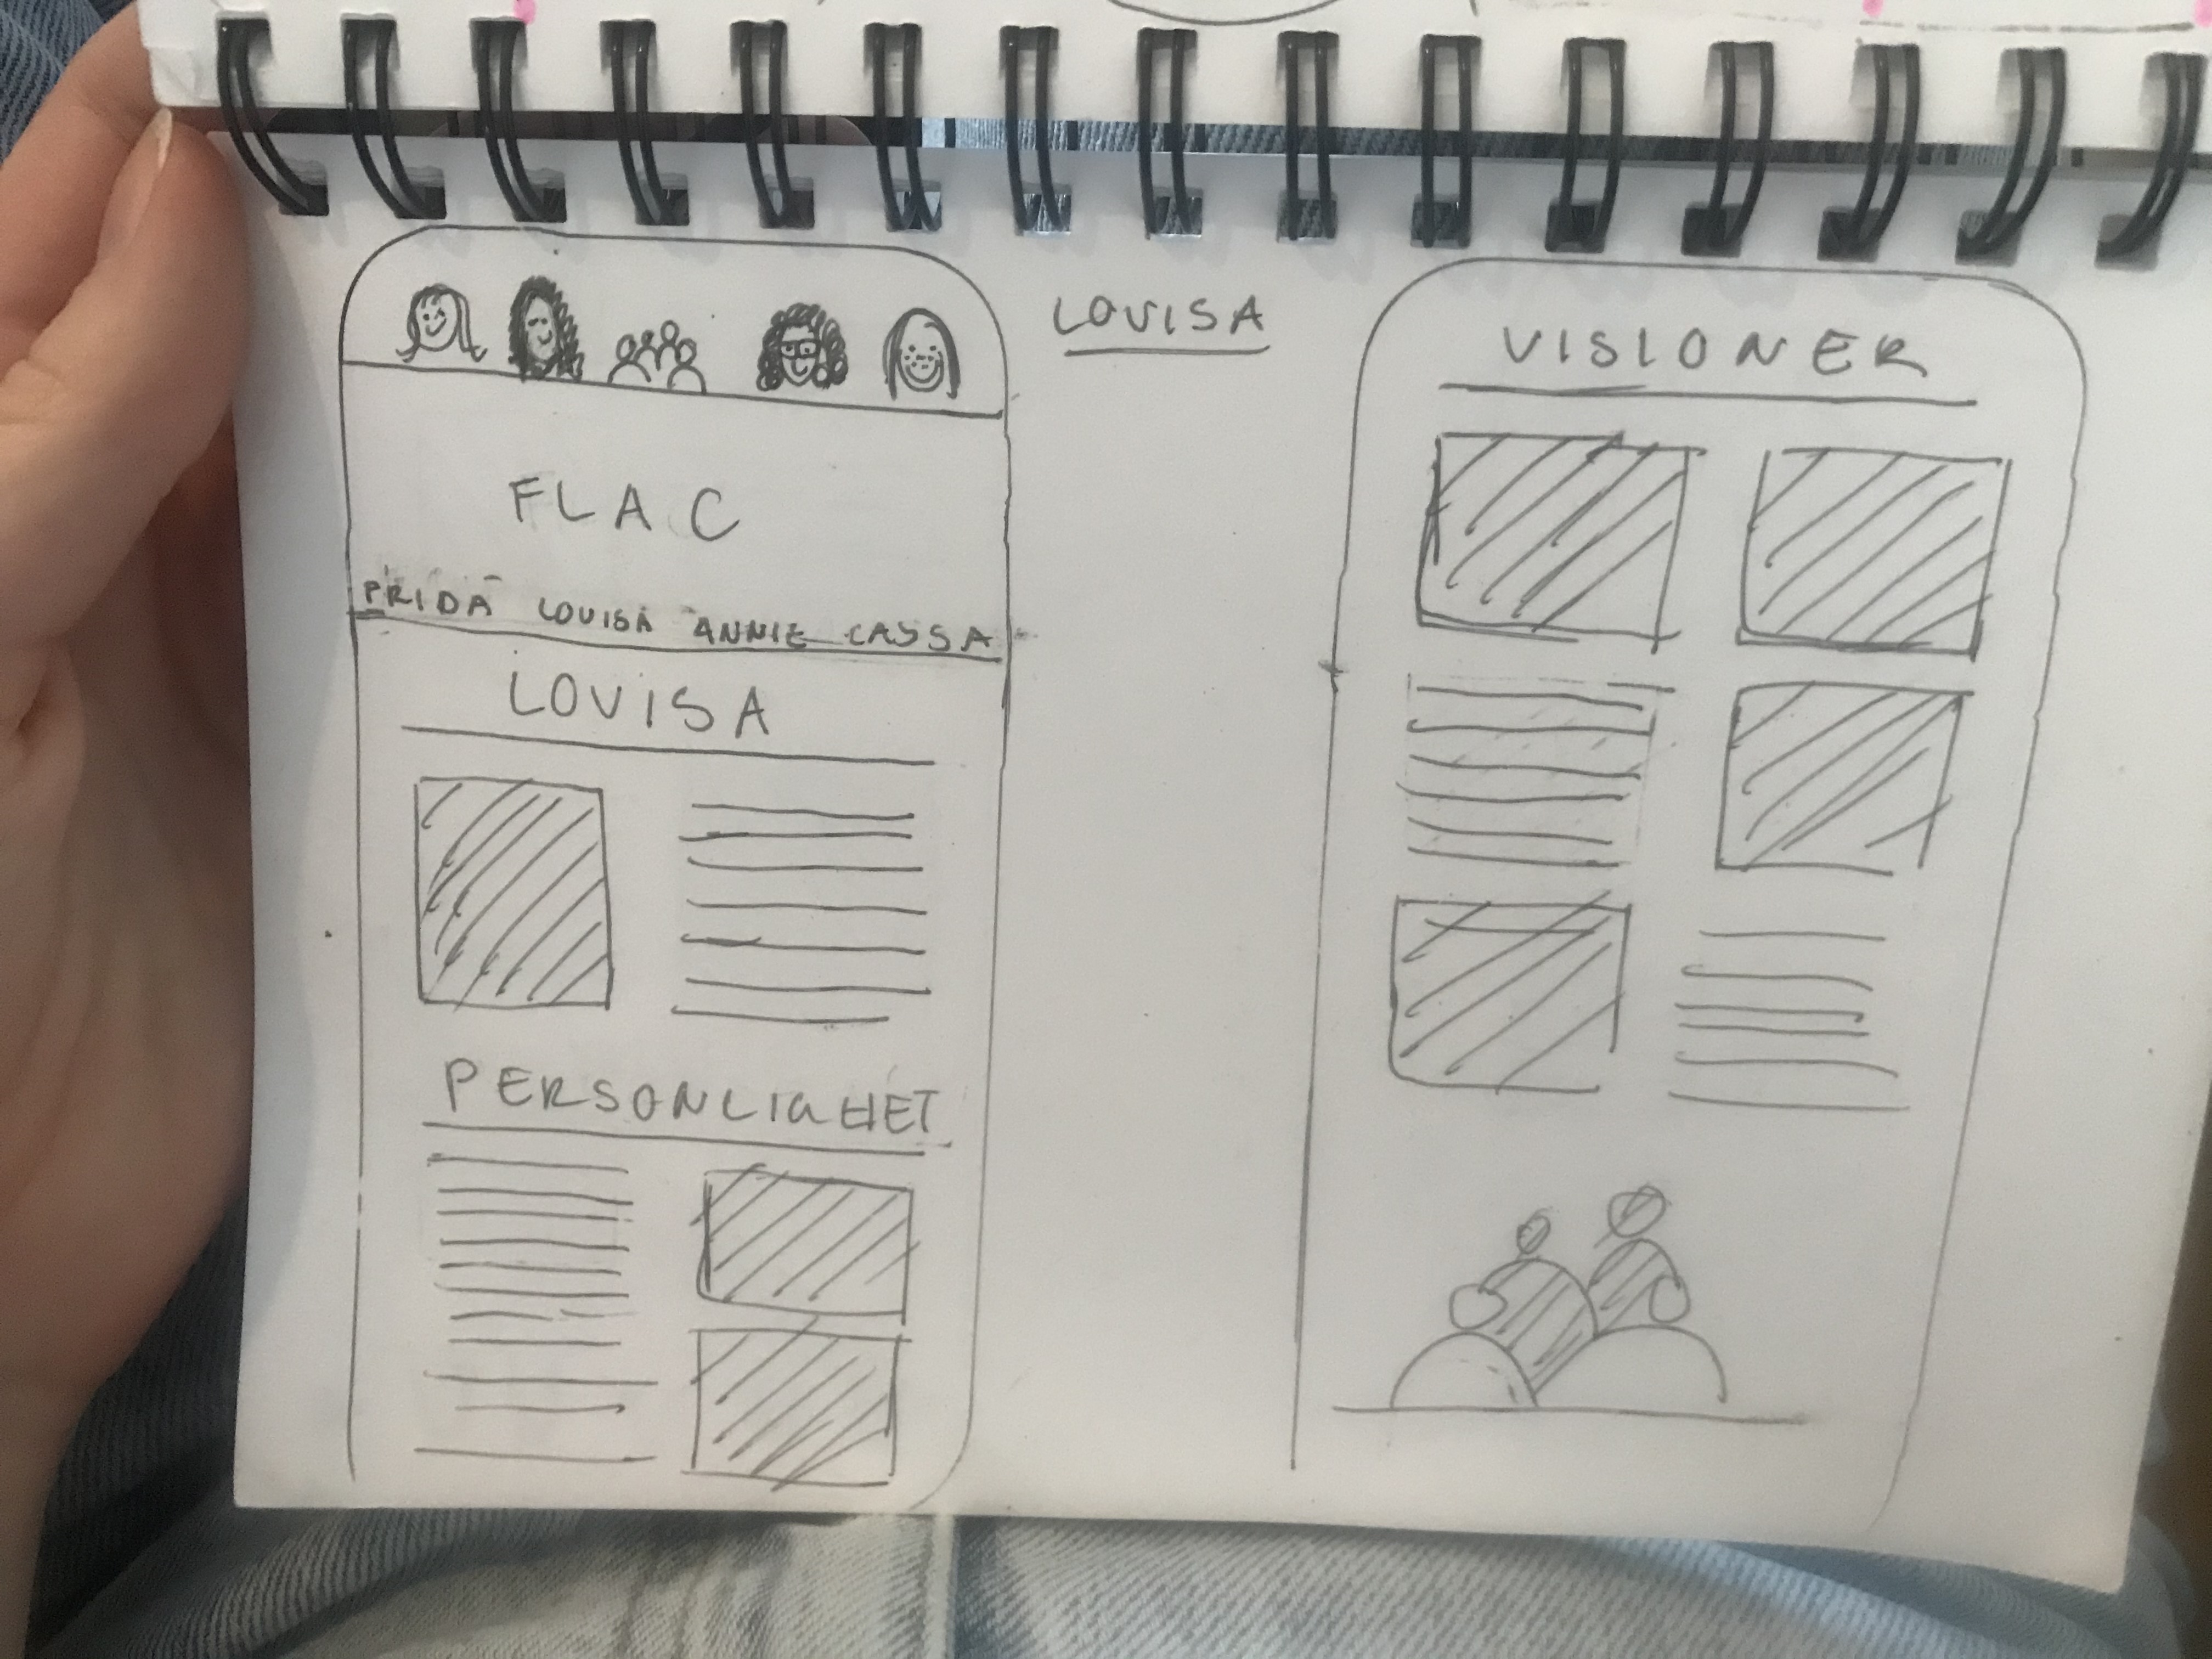 FLAC
FRIDA LOVISA ANNIE CASSA
LOVISA
PERSONLIGHET
LOVISA
VISIONER